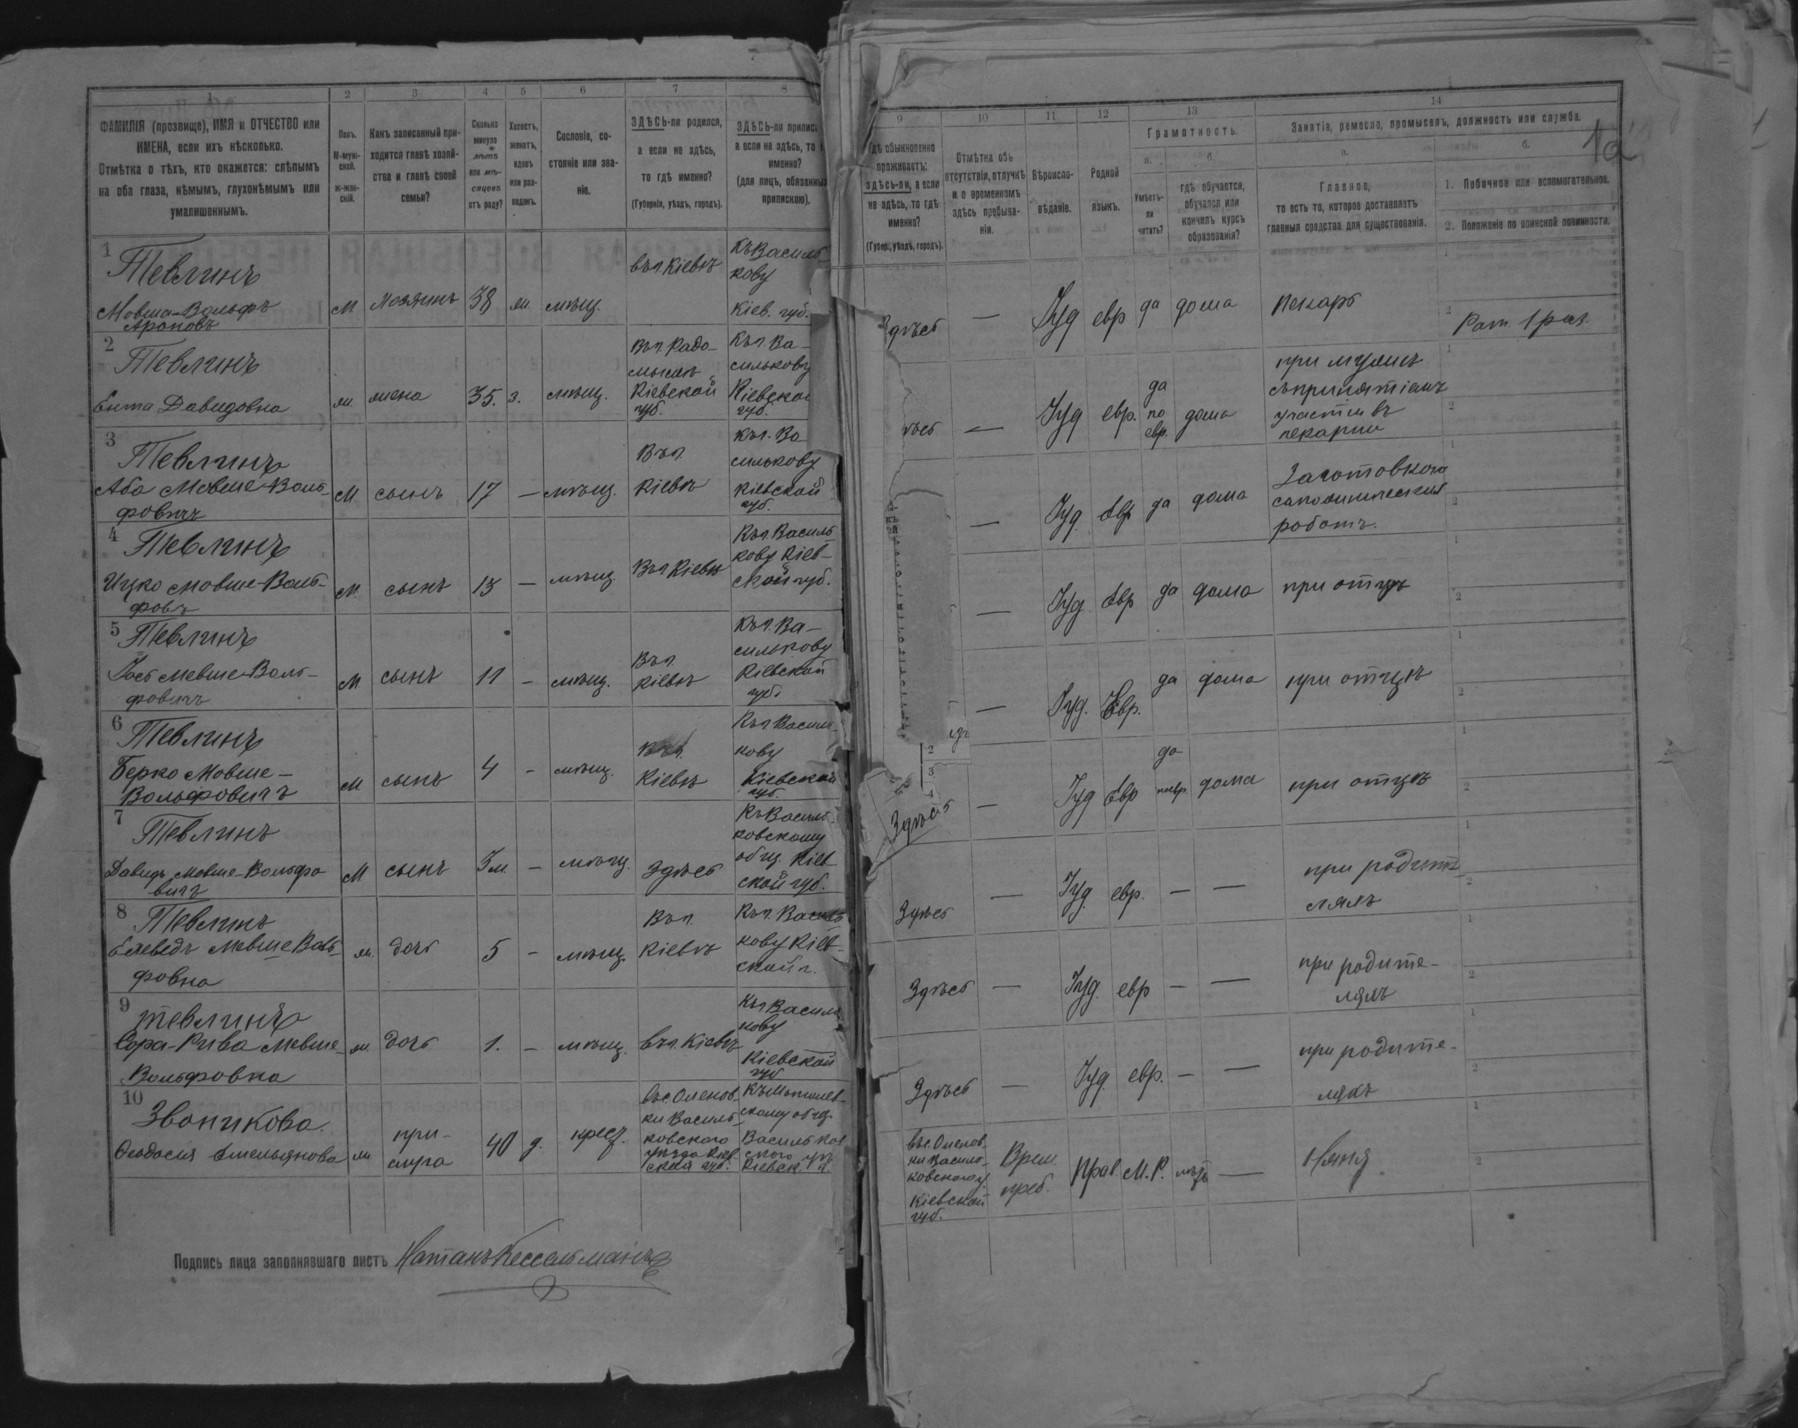 1 2 3 4 5 6 7 8
ФАМИЛІЯ (прозвище), ИМЯ и ОТЧЕСТВО или
ИМЕНА, если ихъ нѣсколько.
Отмѣтка о тѣхъ, кто окажется: слѣпымъ
на оба глаза, нѣмымъ, глухонѣмымъ или
умалишеннымъ.
Полъ.
М-муж-
ской.
Ж-жен-
скій.
Какъ записанный при-
ходится главѣ хозяй-
ства и главѣ своей
семьи?
Сколько
минуло
лѣтъ
или мѣ-
сяцевъ
отъ роду?
Холостъ,
женатъ,
вдовъ
или раз-
веденъ.
Сословіе, со-
стояніе или зва-
ніе.
ЗДѢСЬ-ли родился,
а если не здѣсь,
то гдѣ именно?
(Губернія, уѣздъ, городъ).
ЗДѢСЬ-ли приписа
а если не здѣсь, то
именно?
(для лицъ, обязанныхъ
припискою).
1 Тевлинъ
Мовша-Вольфъ
Ароновъ
М хозяинъ 38 ж. мѣщ.
въ г. Кіевѣ
Къ Василь
кову
Кіев. губ.
2 Тевлинъ
Ента Давидовна
ж жена 35. з. мѣщ.
Въ г. Радо-
мыслѣ
Кіевской
губ.
Къ г. Ва-
силькову
Кіевской
губ.
3 Тевлинъ
Аба Мовше-Воль-
фовичъ
М сынъ 17 — мѣщ.
Въ г.
Кіевѣ
Къ г. Ва
силькову
Кіевской
губ.
4 Тевлинъ
Ицко Мовше-Воль-
фовъ
М сынъ 13 — мѣщ.
Въ г. Кіевѣ
Къ г. Василь
кову Кіев-
ской губ.
5 Тевлинъ
Мовше-Воль-
фовичъ
М сынъ 11 — мѣщ.
Въ г.
Кіевѣ
Къ г. Ва-
силькову
Кіевской
губ.
6 Тевлинъ
Берко Мовше-
Вольфовичъ
М сынъ 4 — мѣщ.
Въ г.
Кіевѣ
Къ г. Василь-
кову
Кіевской
губ.
7 Тевлинъ
Давидъ Мовше-Вольфо
вичъ
М сынъ 3м — мѣщ
Здѣсь
Къ Василь-
ковскому
общ. Кіев
ской губ.
8 Тевлинъ
Мовше Воль-
фовна
ж. дочь 5 — мѣщ.
Въ г.
Кіевѣ
Къ г. Василь
кову Кіев-
ской г.
9 Тевлинъ
Сора-Рива Мовше-
Вольфовна
ж дочь 1. — мѣщ.
въ г. Кіевѣ
Къ г. Василь
кову
Кіевской
губ
10 Звоникова.
Ѳеодосія Амельянова
ж при-
слуга
40 д. крест.
въ с Оленов-
ки Василь-
ковского
уѣзда Кіев
ской губ.
скому общ.
Васильков
ского уѣз
Кіевск. г.
Подпись лица заполнявшаго листъ Натанъ Кессельманъ
9 10 11 12 13 14
1а
гдѣ обыкновенно
проживаетъ:
здѣсь-ли, а если
не здѣсь, то гдѣ
именно?
(Губер., уѣздъ, городъ).
Отмѣтка объ
отсутствіи, отлучкѣ
и о временномъ
здѣсь пребыва-
ніи.
Вѣроиспо-
вѣданіе.
Родной
языкъ.
Грамотность.
а.
Умѣетъ-
ли
читать?
б.
гдѣ обучается,
обучался или
кончилъ курсъ
образованія?
Занятіе, ремесло, промыселъ, должность или служба.
а.
Главное,
то есть то, которое доставляетъ
главныя средства для существованія.
б.
1. Побочное или вспомогательное.
2. Положеніе по воинской повинности.
Здѣсь — Іуд евр да дома пекарь
Рат. 1 раз.
ѣсь — Іуд евр.
да
по
евр.
дома
при мужѣ
съ принятіемъ
участія въ
пекарни
— Іуд евр да дома
Заготовкого
сапожническія
роботъ.
— Іуд евр да дома при отцѣ
— Іуд. Евр. да дома при отцѣ
Здѣсь — Іуд евр
да
дома при отцѣ
Здѣсь — Іуд евр. — —
при родите-
ляхъ
Здѣсь — Іуд. евр — —
при родите-
ляхъ
Здѣсь — Іуд евр. — —
при родите-
ляхъ
въ с Оленов-
ки Василь-
ковского у.
Кіевской
губ.
Врем.
преб.
Прав. М.Р. нѣтъ — Няня.